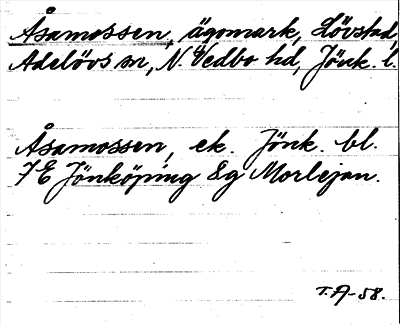 Åsamossen, ägomark, Lövstad,
Adelövs sn, N. Vedbo hd, Jönk. l.
Åsamossen, ek. Jönk. bl.
7E Jönköping 8g Morlejan.
T.A-58.